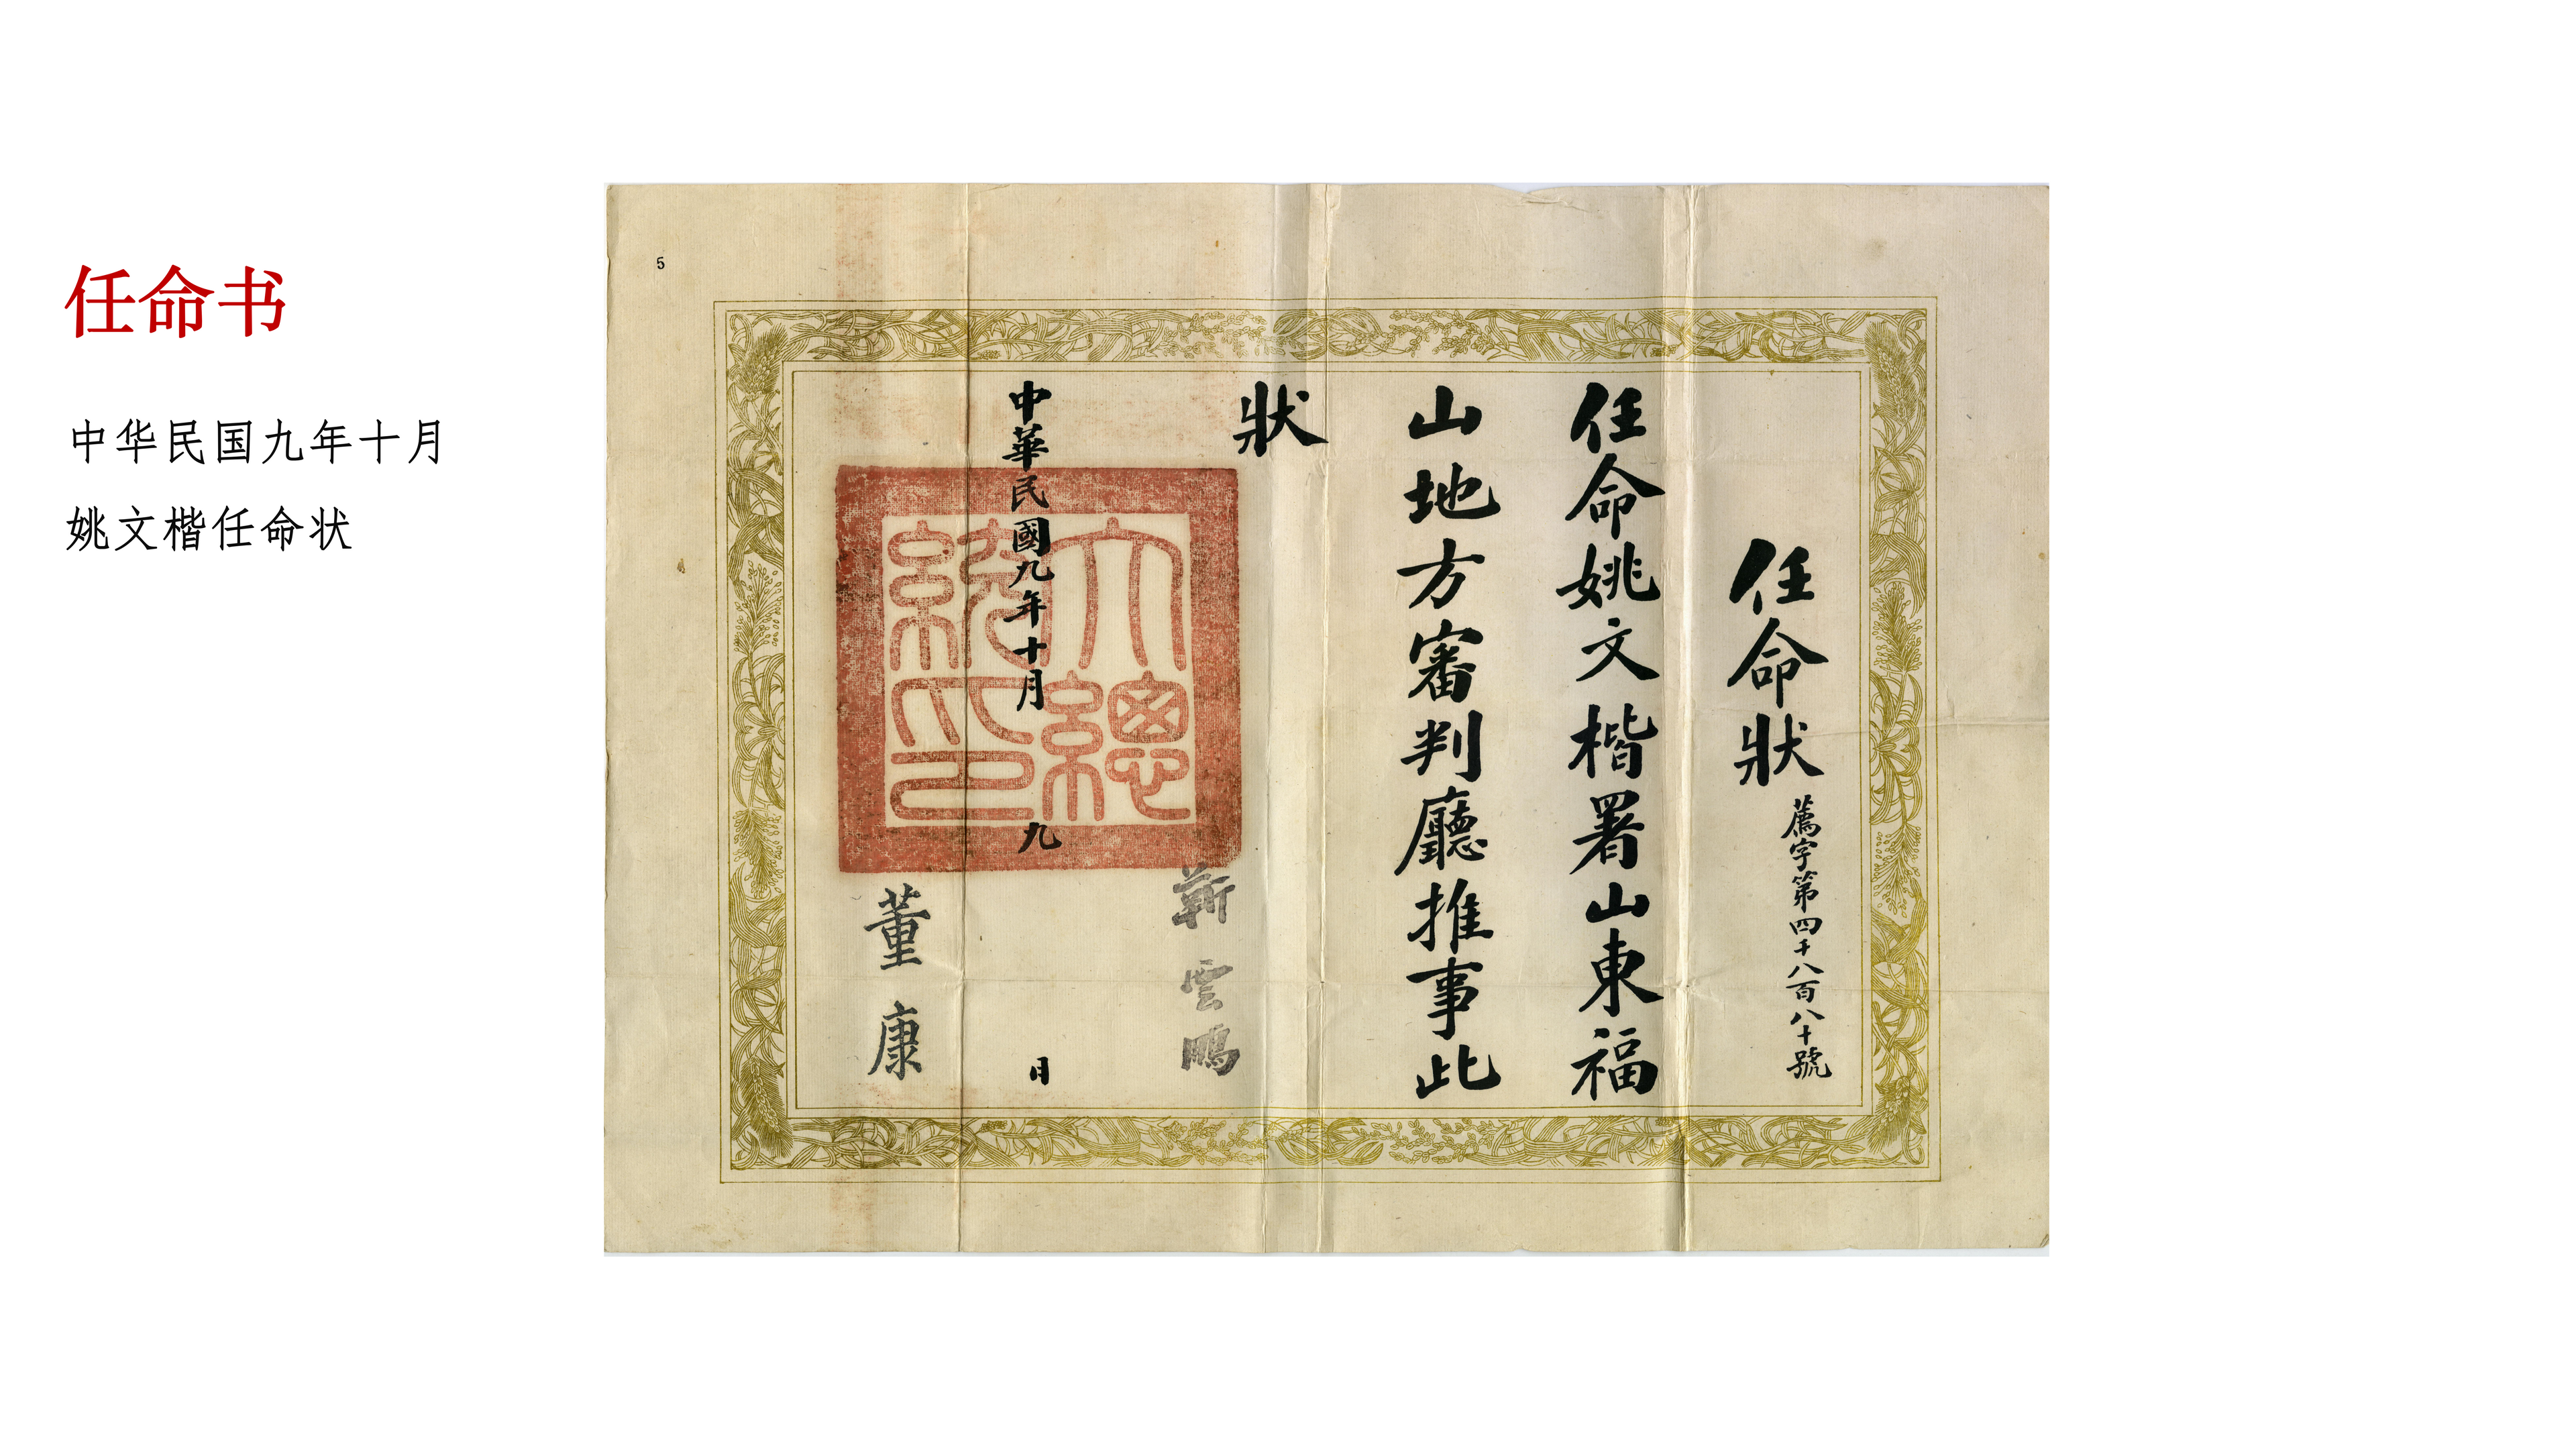 任命书
中华民国九年十月
姚文楷任命状
5
任命狀
薦字第四千八百八十號
任命姚文楷署山東福
山地方審判廳推事此
狀
大總統印
中華民國九年十月九
月
靳雲鵬
董康